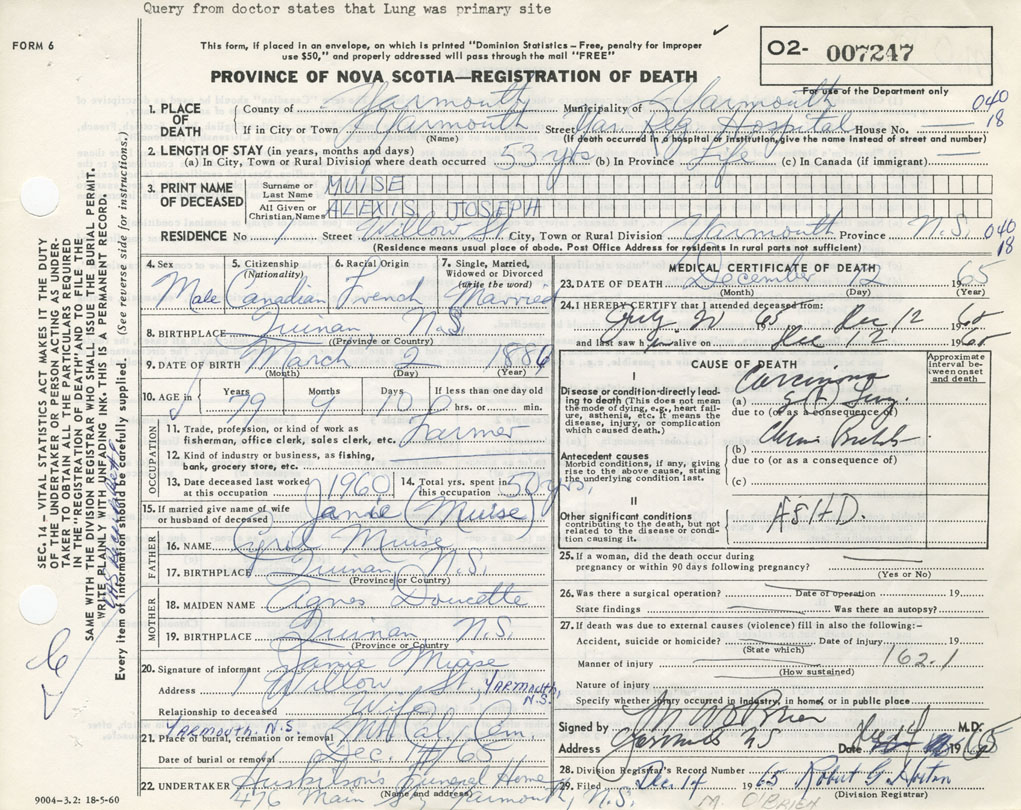 Query from doctor states that Lung was primary site
FORM 6
This form, if placed in an envelope, on which is printed "Dominion Statistics – Free, penalty for improper
use $50," and properly addressed will pass through the mail "FREE"
02- 007247
For use of the Department only
PROVINCE OF NOVA SCOTIA—REGISTRATION OF DEATH
1. PLACE OF DEATH County of Yarmouth Municipality of Yarmouth 040
If in City or Town Yarmouth Street Yar. Reg Hospital House No. — 18
(Name) (If death occurred in a hospital or institution, give name instead of street and number)
2. LENGTH OF STAY (in years, months and days)
(a) In City, Town or Rural Division where death occurred 53 yrs (b) In Province Life (c) In Canada (if immigrant) —
3. PRINT NAME OF DECEASED Surname or Last Name MUISE
All Given or Christian Names ALEXIS JOSEPH
RESIDENCE No 1 Street Willow St City, Town or Rural Division Yarmouth Province N.S. 040
(Residence means usual place of abode. Post Office Address for residents in rural parts not sufficient) 18
4. Sex Male
5. Citizenship (Nationality) Canadian
6. Racial Origin French
7. Single, Married, Widowed or Divorced (write the word) Married
8. BIRTHPLACE Quinan N.S.
(Province or Country)
9. DATE OF BIRTH March 2 1886
(Month) (Day) (Year)
10. AGE in Years 79 Months 9 Days 10 If less than one day old
hrs. or min.
OCCUPATION
11. Trade, profession, or kind of work as
fisherman, office clerk, sales clerk, etc. Farmer
12. Kind of industry or business, as fishing,
bank, grocery store, etc.
13. Date deceased last worked at this occupation 1960
14. Total yrs. spent in this occupation 50 yrs.
15. If married give name of wife
or husband of deceased (Muise)
FATHER
16. NAME Cyril Muise
17. BIRTHPLACE Quinan N.S.
(Province or Country)
MOTHER
18. MAIDEN NAME Agnes Doucette
19. BIRTHPLACE Quinan N.S.
(Province or Country)
20. Signature of informant Muise
Address 1 Willow St YARMOUTH, N.S.
Relationship to deceased Wife
YARMOUTH N.S.
21. Place of burial, cremation or removal Mt. Cal. Cem
Date of burial or removal Dec. 65
22. UNDERTAKER Huskilson's Funeral Home
(Name and address)
476 Main St, Yarmouth, N.S.
9004-3.2: 18-5-60
MEDICAL CERTIFICATE OF DEATH
23. DATE OF DEATH December 12 1965
(Month) (Day) (Year)
24. I HEREBY CERTIFY that I attended deceased from:
July 20 65 Dec 12 1965
and last saw him alive on Dec 12 1965
CAUSE OF DEATH
Approximate interval between onset and death
I
Disease or condition directly leading to death (This does not mean the mode of dying, e.g., heart failure, asthenia, etc. It means the disease, injury, or complication which caused death.)
(a) Carcinoma Lung
due to (or as a consequence of)
Antecedent causes
Morbid conditions, if any, giving rise to the above cause, stating the underlying condition last.
(b)
due to (or as a consequence of)
(c)
II
Other significant conditions
contributing to the death, but not related to the disease or condition causing it.
A.S.H.D.
25. If a woman, did the death occur during
pregnancy or within 90 days following pregnancy?
(Yes or No)
26. Was there a surgical operation? Date of operation 19
State findings Was there an autopsy?
27. If death was due to external causes (violence) fill in also the following:-
Accident, suicide or homicide? Date of injury 19
(State which)
Manner of injury 162.1
(How sustained)
Nature of injury
Specify whether injury occurred in industry, in home, or in public place
Signed by O'Brien M.D.
Address Yarmouth NS Date Dec 14 1965
28. Division Registrar's Record Number
29. Filed Dec 14 1965 Robert G. Horton
(Division Registrar)
M. O'BRIEN
SEC. 14 – VITAL STATISTICS ACT MAKES IT THE DUTY
OF THE UNDERTAKER OR PERSON ACTING AS UNDERTAKER
TO OBTAIN ALL THE PARTICULARS REQUIRED
IN THE "REGISTRATION OF DEATH" AND TO FILE THE
SAME WITH THE DIVISION REGISTRAR WHO SHALL ISSUE THE BURIAL PERMIT.
WRITE PLAINLY WITH UNFADING INK. THIS IS A PERMANENT RECORD.
Every item of information should be carefully supplied. (See reverse side for instructions.)